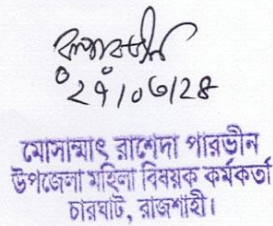 ২৭/০৩/২৪
মোসাম্মাৎ রাশেদা পারভীন
উপজেলা মহিলা বিষয়ক কর্মকর্তা
চারঘাট, রাজশাহী।